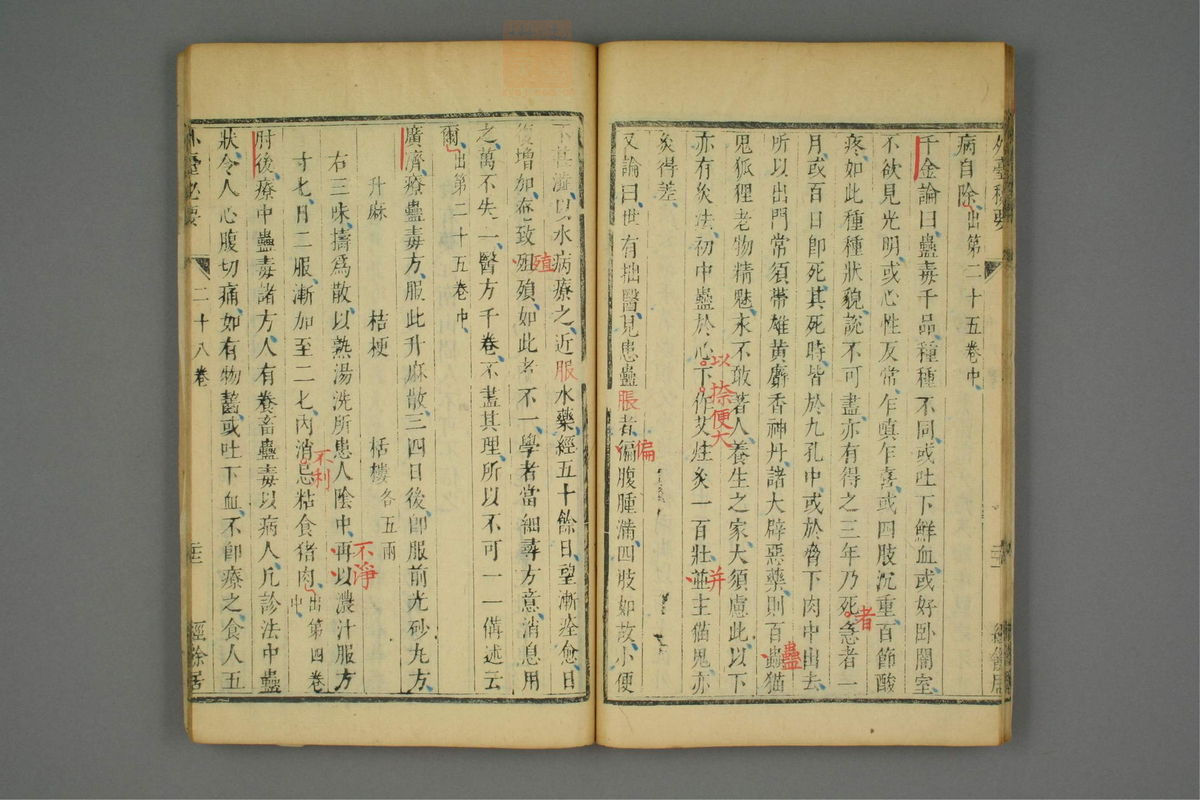 外臺秘要
病自除出第二十五卷中
千金論曰蠱毒千品種種不同或吐下鮮血或好卧闇室
不欲見光明或心性反常乍嗔乍喜或四肢沉重百節酸
疼如此種種狀貌說不可盡亦有得之三年乃死急者一
者
月或百日卽死其死時皆於九孔中或於脅下肉中出去
所以出門常須帶雄黃麝香神丹諸大辟惡藥則百蟲猫
蠱
鬼狐狸老物精魅永不敢著人養生之家大須慮此以下
以捺便大
亦有灸法初中蠱於心下作艾炷灸一百壯並主猫鬼亦
并
灸得差
又論曰世有拙醫見患蠱脹者徧腹腫滿四肢如故小便
偏
不甚澁以水病療之近服水藥經五十餘日望漸痊愈日
殖
復增加奄致殂殞如此者不一學者當細尋方意消息用
之萬不失一醫方千卷不盡其理所以不可一一備述云
爾出第二十五卷中
廣濟療蠱毒方服此升麻散三四日後卽服前光砂丸方
升麻 桔梗 栝樓各五兩
不淨
右三味擣爲散以熟湯洗所患人陰中再以濃汁服方
不利
寸七月二服漸加至二七內消忌粘食猪肉出第四卷中
肘後療中蠱毒諸方人有養畜蠱毒以病人凡診法中蠱
狀令人心腹切痛如有物齧或吐下血不卽療之食人五
外臺必要
二十八卷
二十二
經餘居